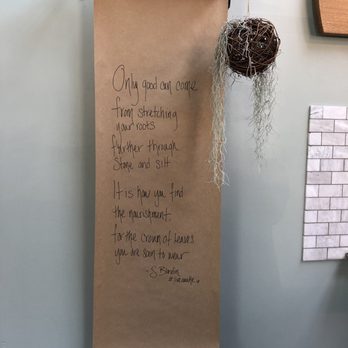 Only good can come
from stretching
your roots
further through
Stone and silt
It is how you find
the nourishment,
for the crown of leaves
you are soon to wear
- S.